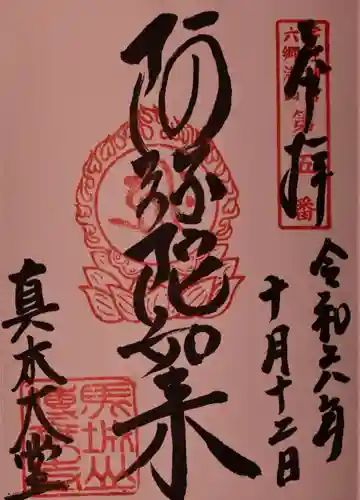 奉拝
六郷満山
令和六年
十月十二日
阿弥陀如来
真木大堂
馬城山